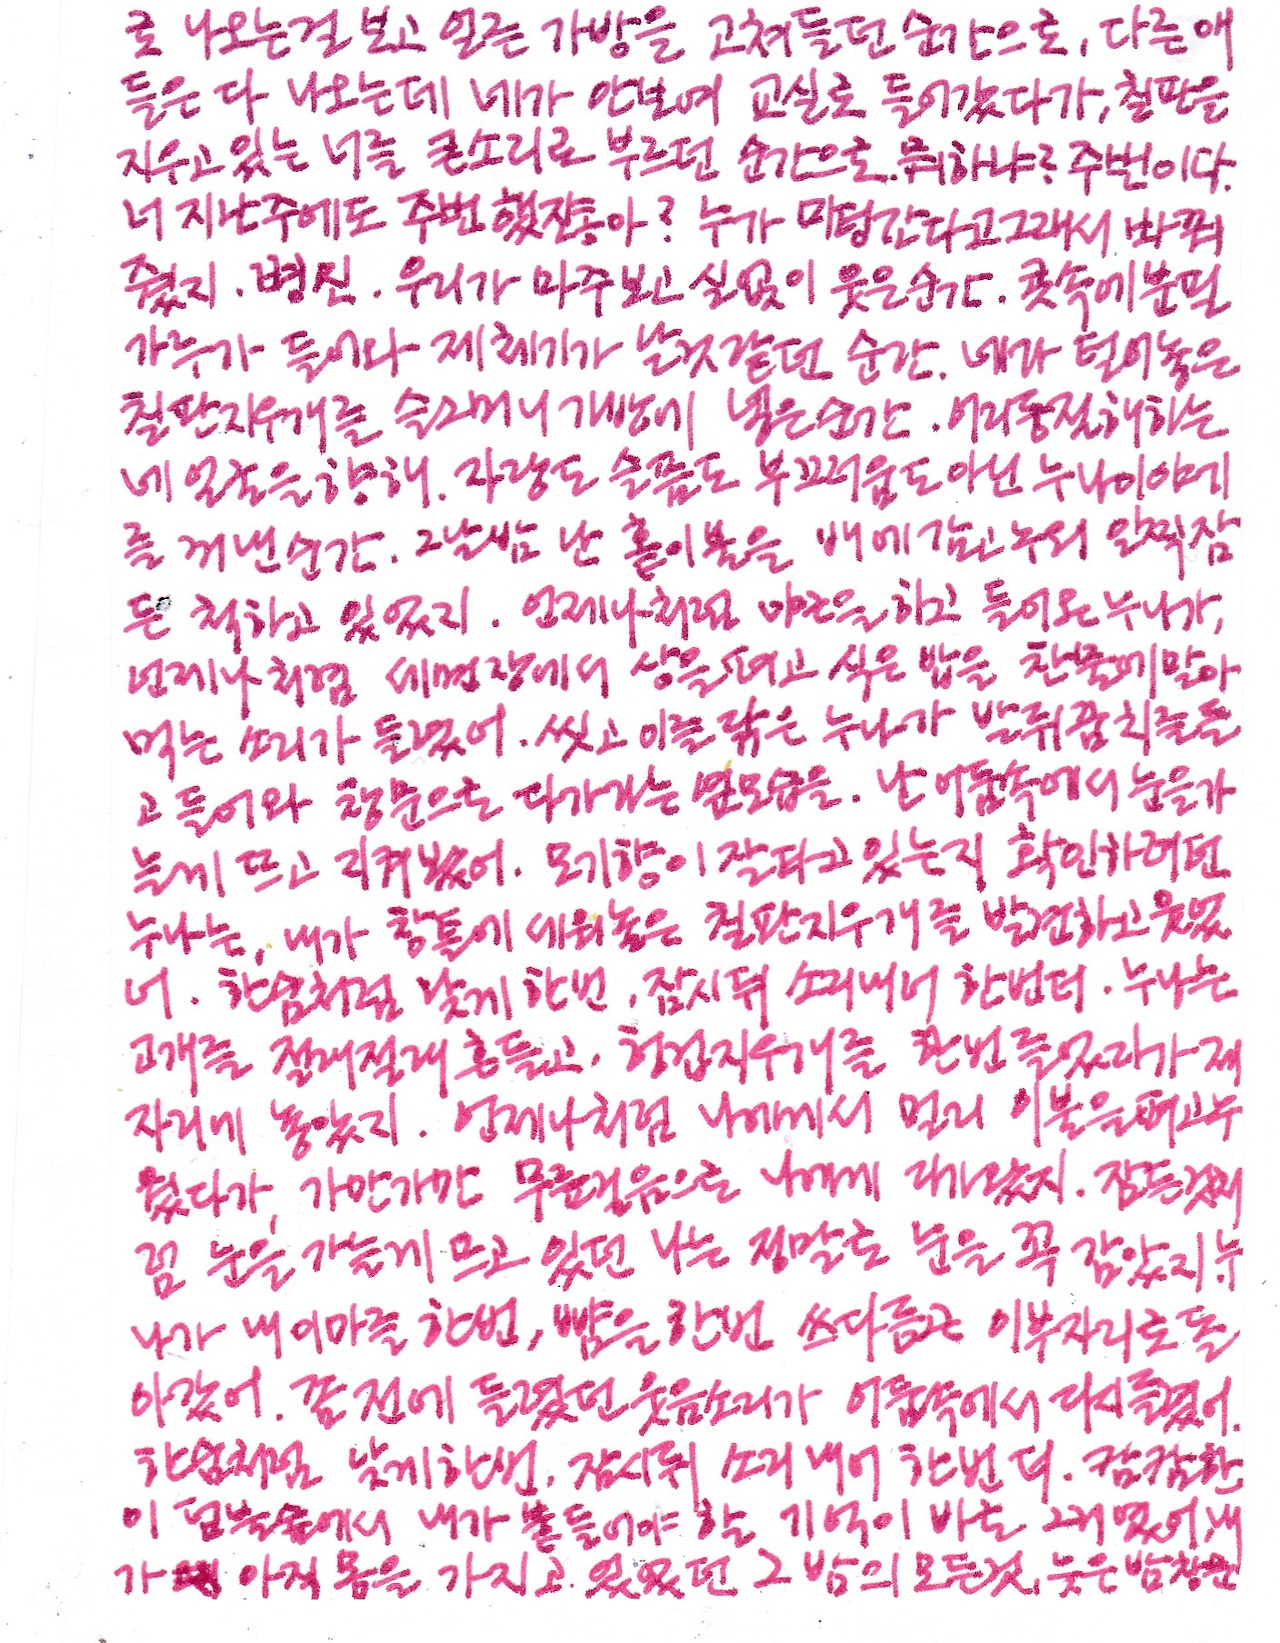 로 나오는걸 보고 얼른 가방을 고쳐들던 순간으로, 다른 애
들은 다 나오는데 네가 안보여 교실로 들어갔다가, 칠판을
지우고있는 너를 큰소리로 부르던 순간으로. 뭐하냐? 주번이다.
너 지난주에도 주번했잖아? 누가 미팅간다고그래서 바꿔
줬지. 병신. 우리가 마주보고 실없이 웃은순간. 콧속에분필
가루가 들어와 재채기가 날것같던 순간. 네가 털어놓은
칠판지우개를 슬그머니 가방에 넣은순간. 어리둥절해하는
네 얼굴을향해. 자랑도 슬픔도 부끄러움도 아닌 누나이야기
를 꺼낸순간. 그날밤 난 홑이불을 배에 감고누워 일찍잠
든 척하고 있었지. 언제나처럼 야근을하고 들어온누나가,
언제나처럼 세면장에서 상을펴고 식은 밥을 찬물에말아
먹는 소리가 들렸어. 씻고이를닦은 누나가 발뒤꿈치를들
고들어와 창문으로 다가가는 옆모습을. 난 어둠속에서 눈을가
늘게 뜨고 지켜봤어. 모기향이 잘타고있는지 확인하려던
누나는, 내가 창틀에 세워놓은 칠판지우개를 발견하고웃었
어. 한숨처럼 낮게한번, 잠시뒤 소리내어 한번더. 누나는
고개를 절래절래흔들고. 헝겊지우개를 한번들었다가 제
자리에 놓았지. 언제나처럼 나에게서 멀리 이불을펴고누
웠다가, 가만가만 무릎걸음으로 나에게 다가왔지. 잠든것처
럼 눈을 가늘게 뜨고 있던 나는 정말로 눈을 꼭 감았지. 누
나가 내이마를 한번, 뺨을 한번 쓰다듬곤 이부자리로돌
아갔어. 좀 전에 들렸던웃음소리가 어둠속에서 다시들렸어.
한숨처럼 낮게한번, 잠시뒤 소리내어 한번 더. 캄캄한
이 덤불숲에서 내가 붙들어야 할 기억이 바로 그거였어. 내
가 아직 몸을 가지고 있었던 그 밤의 모든것. 늦은 밤창문